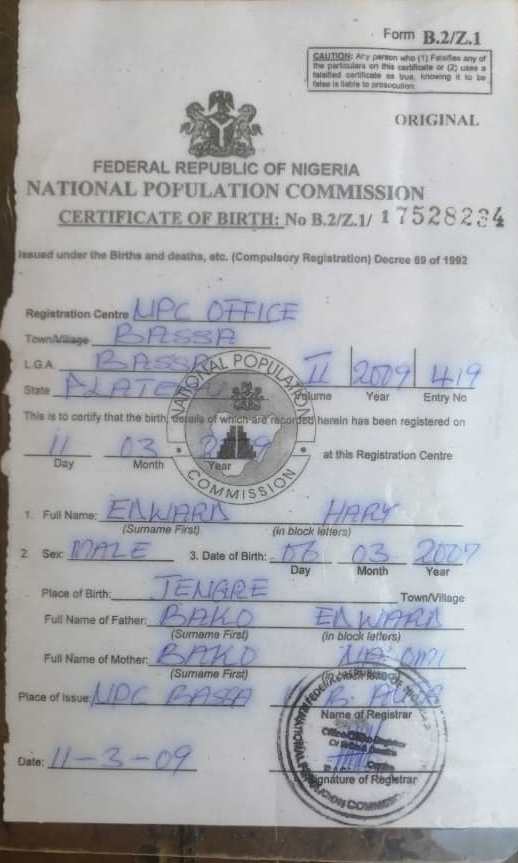 Form B.2/Z.1
CAUTION: Any person who (1) Falsifies any of
the particulars on this certificate or (2) uses a
falsified certificate as true, knowing it to be
false is liable to prosecution.
ORIGINAL
FEDERAL REPUBLIC OF NIGERIA
NATIONAL POPULATION COMMISSION
CERTIFICATE OF BIRTH: No B.2/Z.1/ 17528234
Issued under the Births and deaths, etc. (Compulsory Registration) Decree 69 of 1992
Registration Centre NPC OFFICE
Town/Village BASSA
L.G.A. BASSA II 2009 419
State PLATEAU Volume Year Entry No
NATIONAL POPULATION COMMISSION
This is to certify that the birth, details of which are recorded herein has been registered on
11 03 2009 at this Registration Centre
Day Month Year
1. Full Name: EDWARD HARY
(Surname First) (in block letters)
2 Sex: MALE 3. Date of Birth: 06 03 2007
Day Month Year
Place of Birth: JENARE Town/Village
Full Name of Father: BAKO EDWARD
(Surname First) (in block letters)
Full Name of Mother: BAKO NAOMI
(Surname First)
Place of Issue: NPC BASSA B.
Name of Registrar
Date: 11-3-09
Signature of Registrar